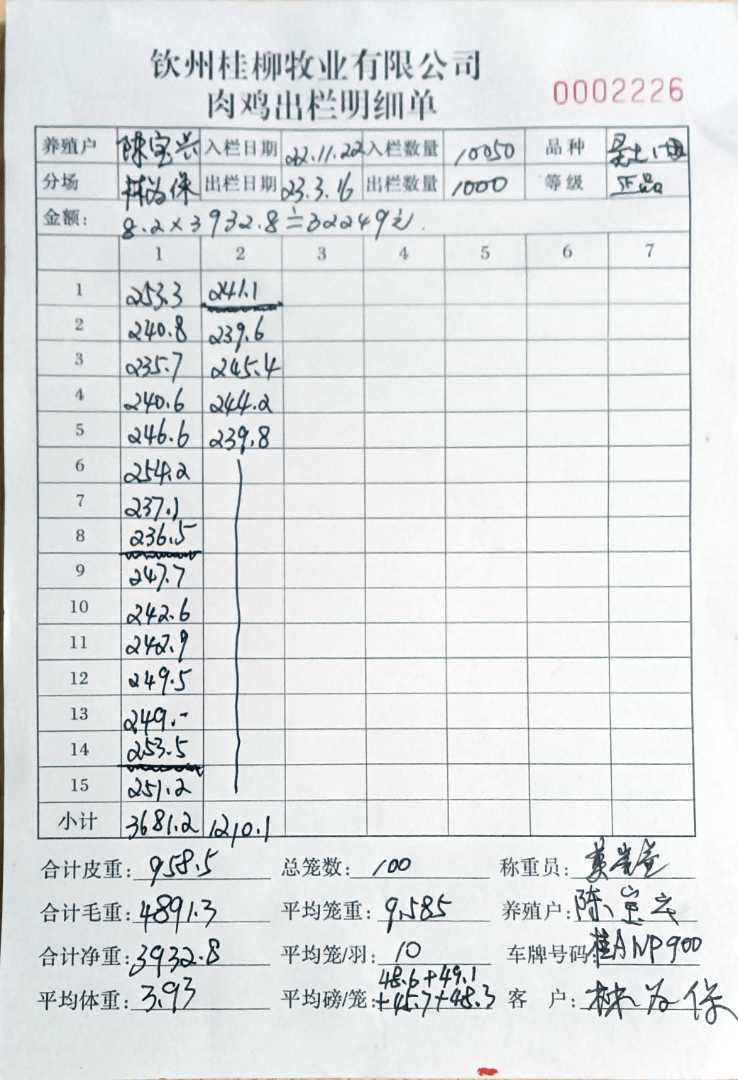 钦州桂柳牧业有限公司
肉鸡出栏明细单
0002226
养殖户 陈宝兴 入栏日期 22.11.22 入栏数量 10050 品种
分场 林为保 出栏日期 23.3.16 出栏数量 1000 等级 正品
金额: 8.2×3932.8≐32249元.
1 2 3 4 5 6 7
1 253.3 241.1
2 240.8 239.6
3 235.7 245.4
4 240.6 244.2
5 246.6 239.8
6 254.2
7 237.1
8 236.5
9 247.7
10 242.6
11 242.9
12 249.5
13 249.-
14 253.5
15 251.2
小计 3681.2 1210.1
合计皮重: 958.5 总笼数: 100 称重员:
合计毛重: 4891.3 平均笼重: 9.585 养殖户: 陈宝兴
合计净重: 3932.8 平均笼/羽: 10 车牌号码: 桂ANP900
平均体重: 3.93 平均磅/笼: 48.6+49.1+45.7+48.3 客 户: 林为保